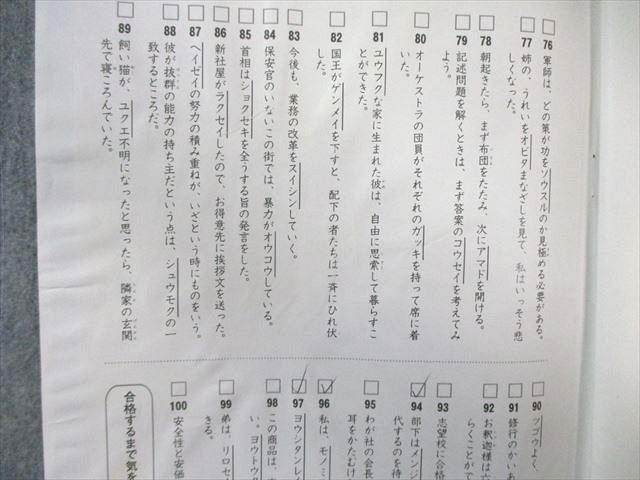 76 軍師は、どの策が功をソウスルのか見極める必要がある。
77 姉の、うれいをオビタまなざしを見て、私はいっそう悲
しくなった。
78 朝起きたら、まず布団をたたみ、次にアマドを開ける。
79 記述問題を解くときは、まず答案のコウセイを考えてみ
よう。
80 オーケストラの団員がそれぞれのガッキを持って席に着
いた。
81 ユウフクな家に生まれた彼は、自由に思索して暮らすこ
とができた。
82 国王がゲンメイを下すと、配下の者たちは一斉にひれ伏
した。
83 今後も、業務の改革をスイシンしていく。
84 保安官のいないこの街では、暴力がオウコウしている。
85 首相はショクセキを全うする旨の発言をした。
86 新社屋がラクセイしたので、お得意先に挨拶文を送った。
87 ヘイゼイの努力の積み重ねが、いざという時にものをいう。
88 彼が抜群の能力の持ち主だという点は、シュウモクの一
致するところだ。
89 飼い猫が、ユクエ不明になったと思ったら、隣家の玄関
先で寝ころんでいた。
90 ツゴウよく、
91 修行のかいあ
92 お釈迦様は六
らくことがで
93 志望校に合格
94 部下はメンジ
代するのを待
95 わが社の会長
耳をかたむけ
96 私は、モノミ
97 ヨウシタンレイ
98 この商品は、
い。ヨウトウク
99 弟は、リロセ
きる。
100 安全性と安価
合格するまで気を